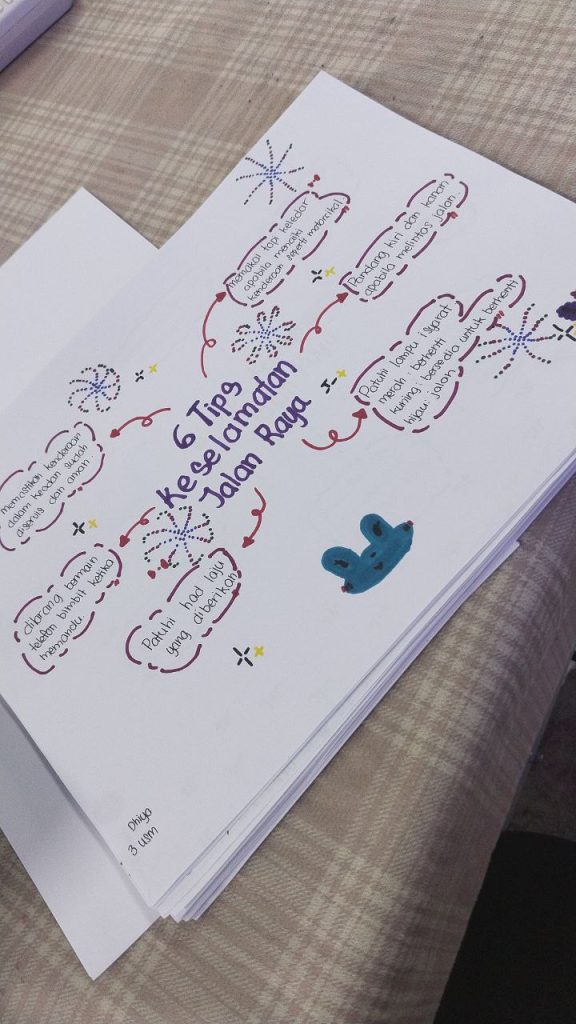 6 Tips
Keselamatan
Jalan Raya
memakai topi keledar
apabila menaiki
kenderaan seperti motorsikal
Pandang kiri dan kanan
apabila melintas jalan.
Patuhi lampu isyarat
merah: berhenti
kuning: bersedia untuk berhenti
hijau: jalan
Patuhi had laju
yang diberikan
dilarang bermain
telefon bimbit ketika
memandu.
memastikan kenderaan
dalam keadan sudah
diservis dan aman.
Dhiya
3 usm